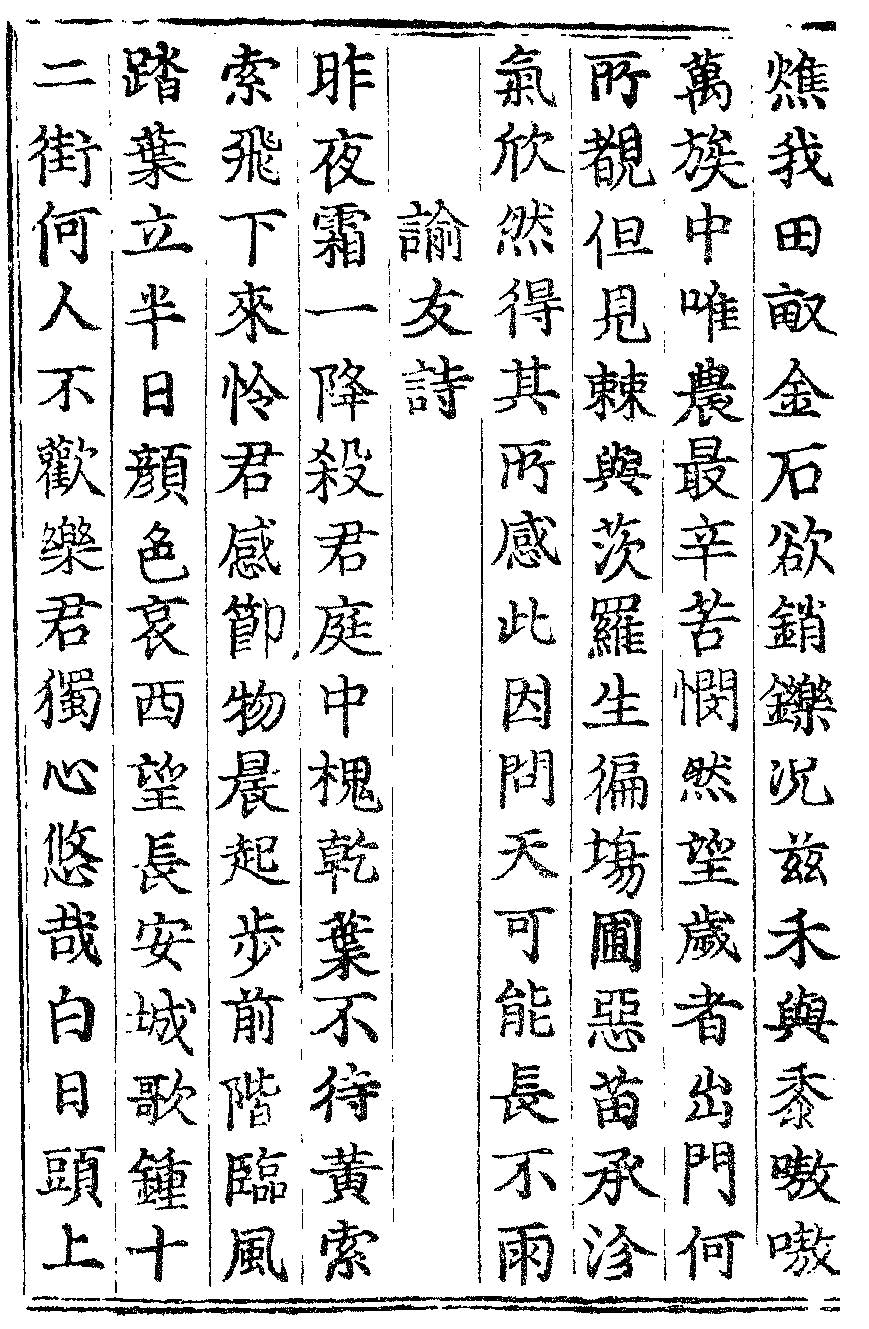 燋我田畝金石欲銷鑠况兹禾與黍嗷嗷
萬族中唯農最辛苦憫然望歲者出門何
所覩但見棘與茨羅生徧塲圃惡苗承沴
氣欣然得其所感此因問天可能長不雨
諭友詩
昨夜霜一降殺君庭中槐乾葉不待黃索
索飛下來怜君感節物晨起步前階臨風
踏葉立半日顔色哀西望長安城歌鍾十
二街何人不歡樂君獨心悠哉白日頭上